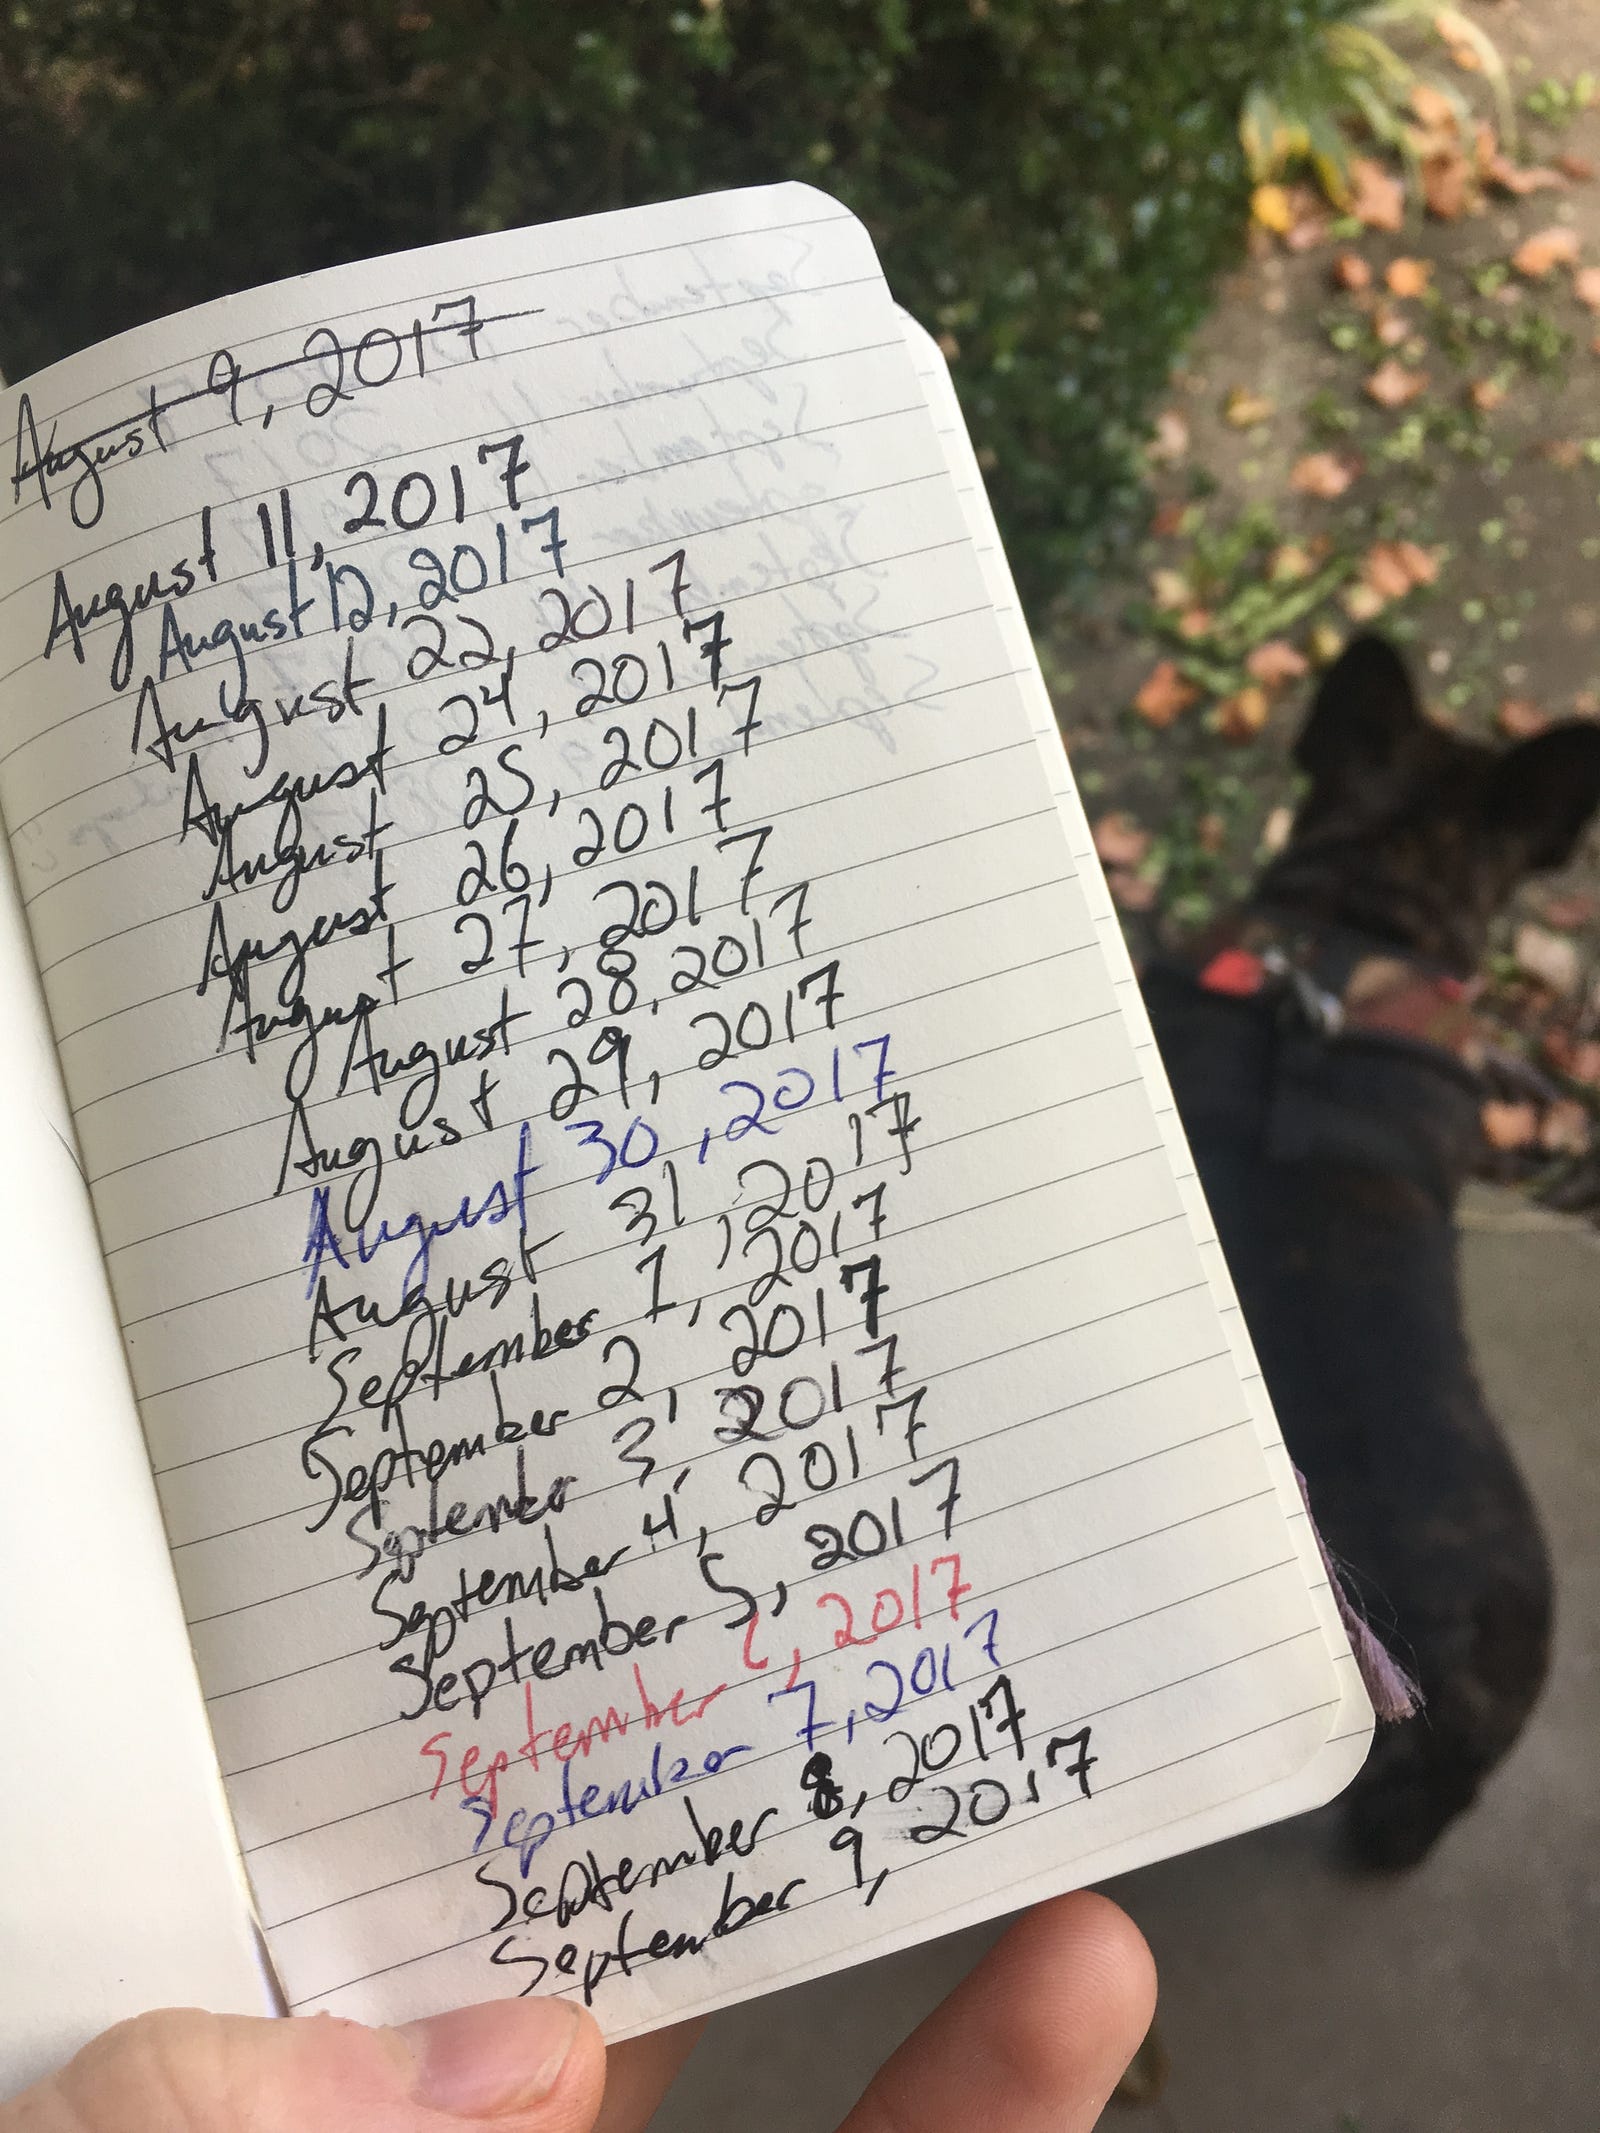 August 9, 2017
August 11, 2017
August 12, 2017
August 22, 2017
August 24, 2017
August 25, 2017
August 26, 2017
August 27, 2017
August 28, 2017
August 29, 2017
August 30, 2017
August 31, 2017
September 1, 2017
September 2, 2017
September 3, 2017
September 4, 2017
September 5, 2017
September 6, 2017
September 7, 2017
September 8, 2017
September 9, 2017